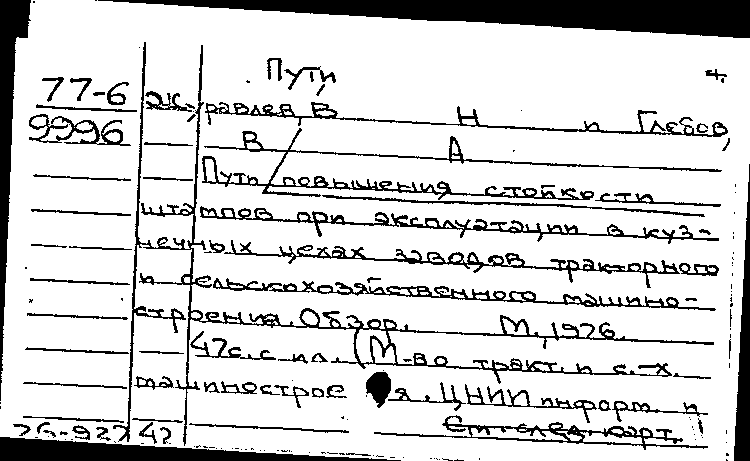 Пути
77-6 Журавлев, В Н и Глебов,
9996 В А
Пути повышения стойкости
штампов при эксплуатации в куз-
нечных цехах заводов тракторного
и сельскохозяйственного машино-
строения. Обзор. М., 1976.
47с. с ил. (М-во тракт. и с.-х.
машинострое я. ЦНИИ информ. и
См. след. карт.
76-927 42